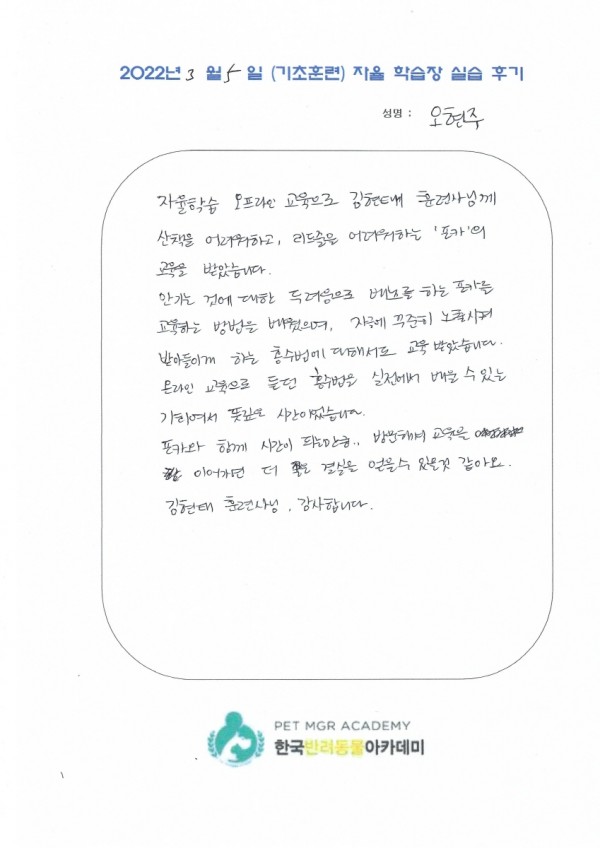 2022년 3 월 5 일 (기초훈련) 자율 학습장 실습 후기
성명 : 오현주
자율학습 오프라인 교육으로 김현태 훈련사님께
산책을 어려워하고, 리드줄을 어려워하는 '포카'의
교육을 받았습니다.
안기는 것에 대한 두려움으로 배조를 하는 포카를
교육하는 방법을 배웠으며, 자극에 꾸준히 노출시켜
받아들이게 하는 홍수법에 대해서도 교육 받았습니다.
온라인 교육으로 듣던 홍수법을 실전에서 배울 수 있는
기회여서 뜻깊은 시간이었습니다.
포카와 함께 시간이 되는만큼, 방문하여 교육을
이어가면 더 결실을 얻을수 있을것 같아요.
김현태 훈련사님, 감사합니다.
PET MGR ACADEMY
한국반려동물아카데미